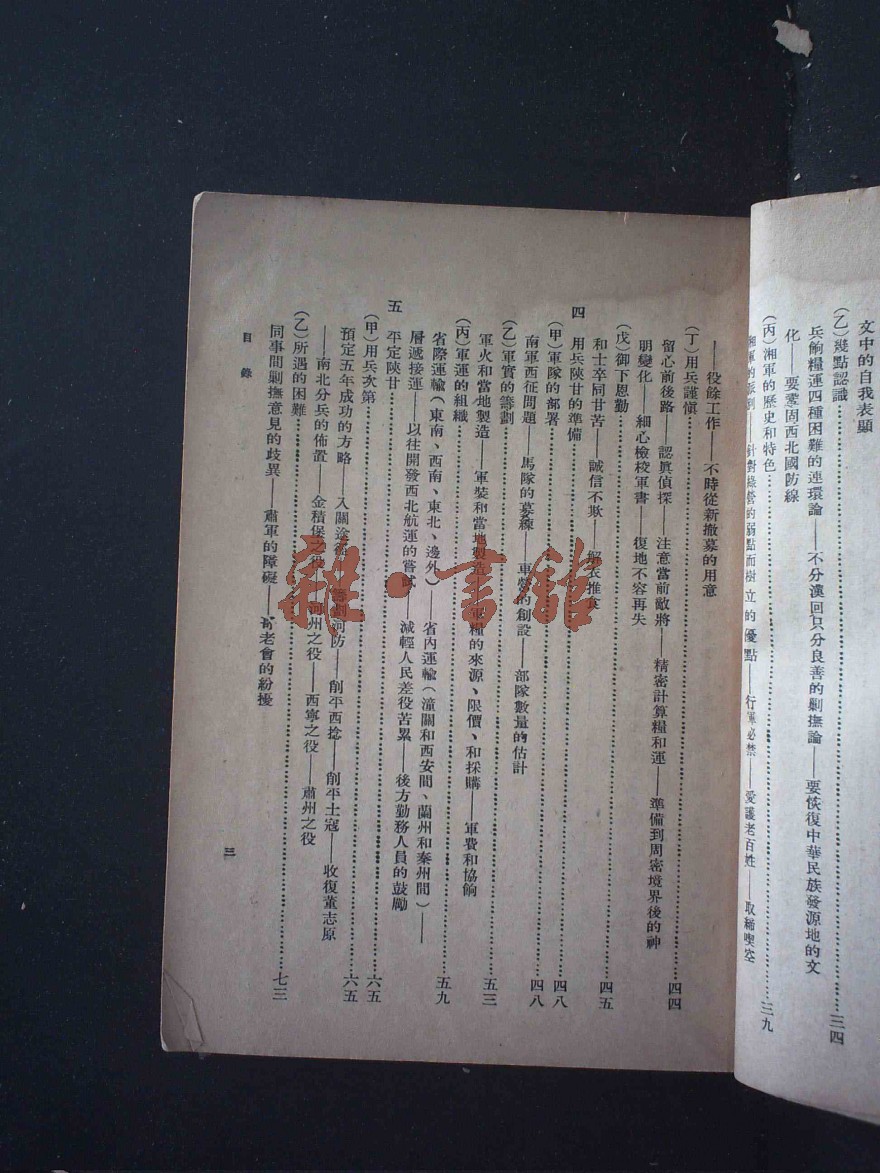 文中的自我表顯
(乙)幾點認識……三四
兵餉糧運四種困難的連環論——不分漢回只分良善的剿撫論——要恢復中華民族發源地的文
化——要鞏固西北國防線
(丙)湘軍的歷史和特色……三九
湘軍的派別——針對綠營的弱點而樹立的優點——行軍必禁——愛護老百姓——取締喫空
——役餘工作——不時從新撤募的用意
(丁)用兵謹慎……四四
留心前後路——認眞偵探——注意當前敵將——精密計算糧和運——準備到周密境界後的神
明變化——細心檢校軍書——復地不容再失
(戊)御下恩勤……四五
和士卒同甘苦——誠信不欺——解衣推食
四 用兵陝甘的準備……四八
(甲)軍隊的部署……四八
南軍西征問題——馬隊的募練——車營的創設——部隊數量的估計
(乙)軍實的籌劃……五三
軍火和當地製造——軍裝和當地製造——軍糧的來源、限價、和採購——軍費和協餉
(丙)軍運的組織……五九
省際運輸(東南、西南、東北、邊外)——省內運輸(潼關和西安間、蘭州和秦州間)——
層遞接運——以往開發西北航運的嘗試——減輕人民差役苦累——後方勤務人員的鼓勵
五 平定陝甘……六五
(甲)用兵次第……六五
預定五年成功的方略——入關途程——籌劃河防——削平西捻——削平土寇——收復董志原
——南北分兵的佈置——金積堡之役——河州之役——西寧之役——肅州之役
(乙)所遇的困難……七三
同事間剿撫意見的歧異——肅軍的障礙——哥老會的紛擾
目錄
三
雜·書館